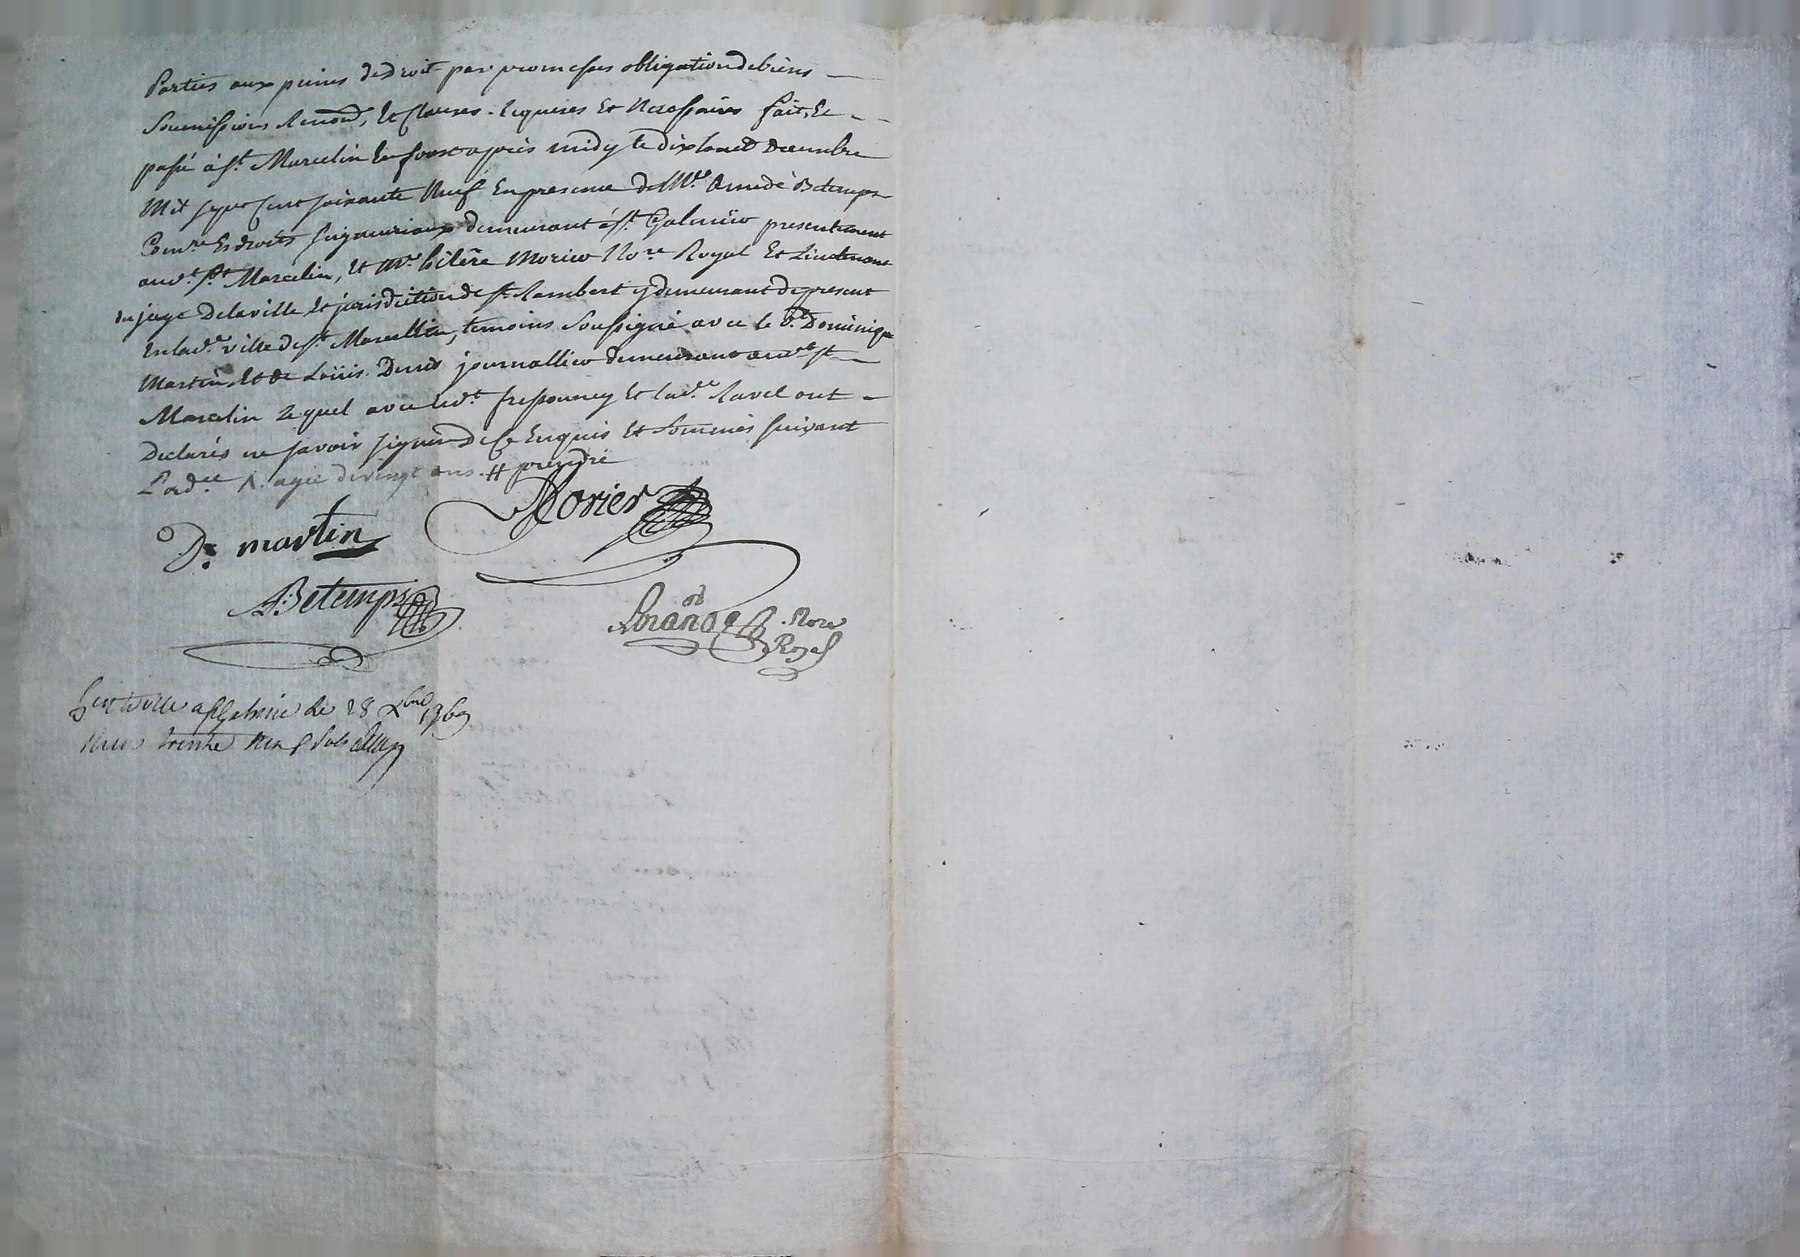 Parties aux peines de droit par promesses obligation de biens
Soumissions Renond, et Clauses requises et Necessaires fait, et
passé à st. Marcelin en forest après midy le dixhuit decembre
Mil sept Cent soixante Neuf En presence de Mre. Amedé Betemps
Comre. Es droits seigneuriaux demeurant à st. Galmier presentement
aud. st. Marcelin, et Mre. hilère Morier Nore. Royal et Lieutenant
du juge de la ville et jurisdiction de st. Rambert y demeurant de present
En lad. ville de st. Marcellin, temoins Soussigné avec le d. Dominique
Martin, et de Loüis journallier demeurant aud. st
Marcelin lequel avec led. et lad. Ravel ont
declarés ne savoir signer de ce Enquis et Sommés suivant
Lordce. agée de vingt ans. # prendre
Morier
D. martin
A. Betemps
Nore
Royal
a st galmier le 28 xbre 1769
Recu trente Neuf sols